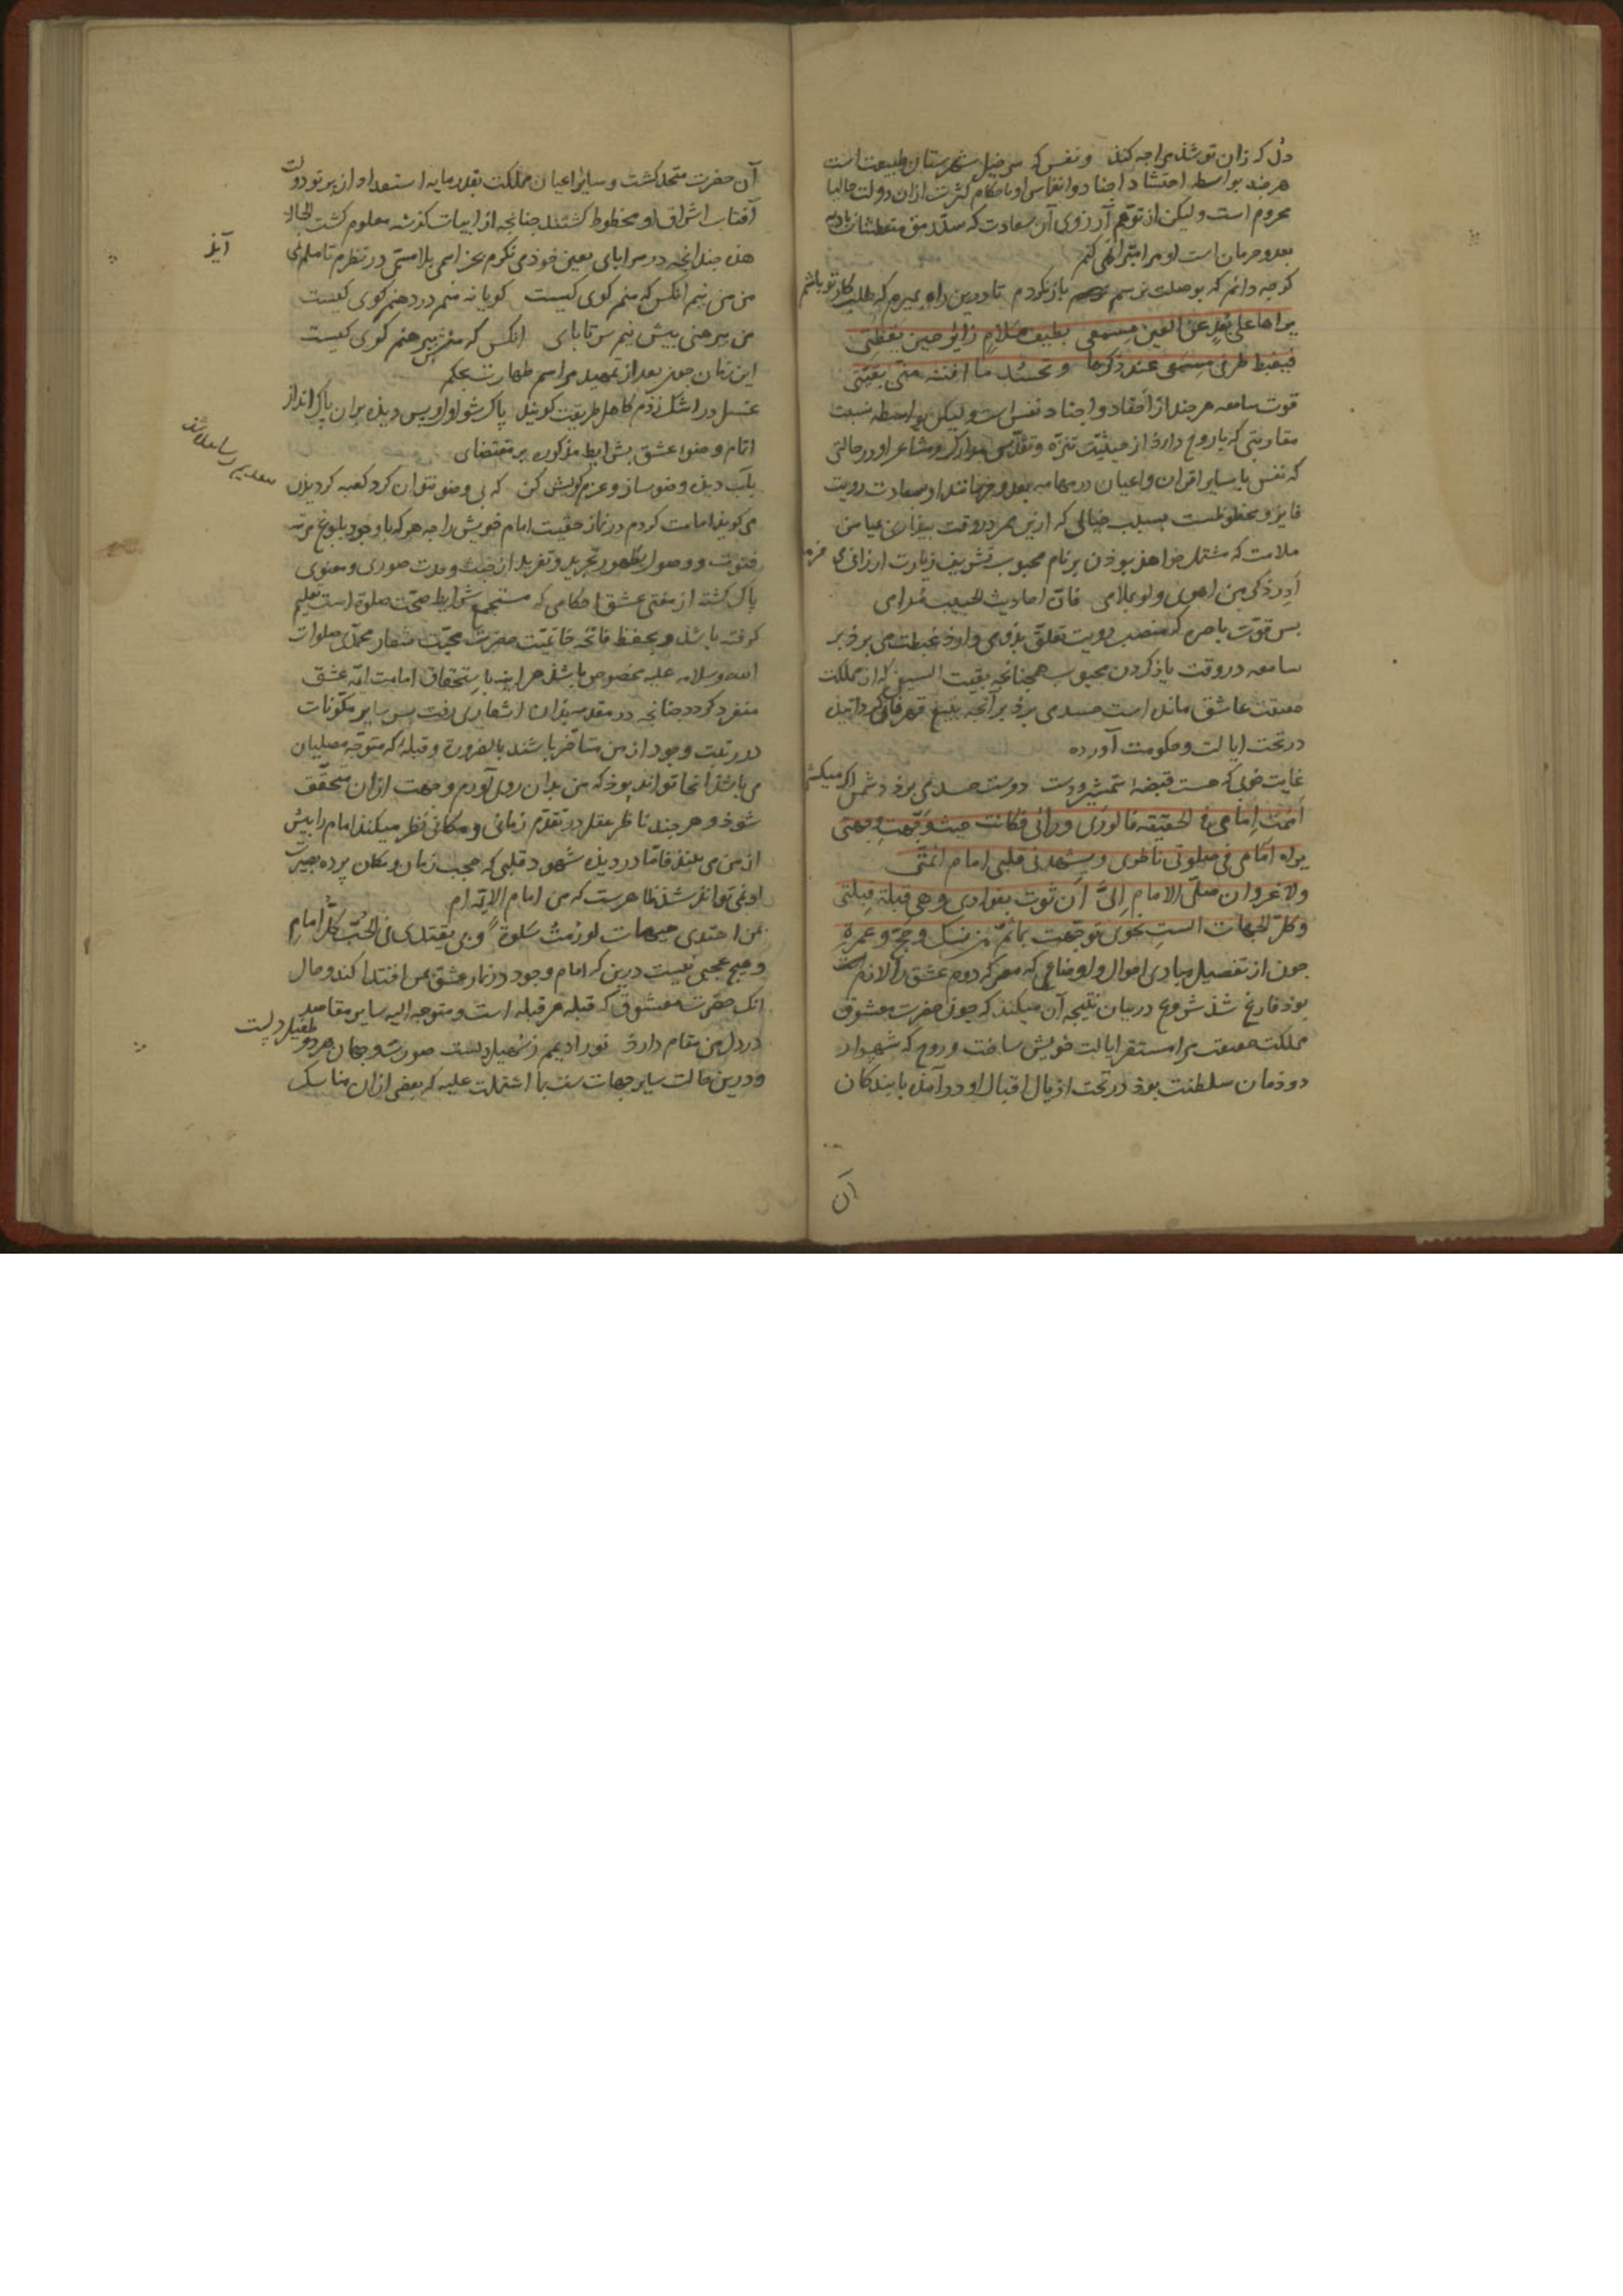 دل که زان تو شد مرا چه کند و نفس که سرخیل شهرستان طبیعت است
هرچند بواسطه احتشاد اجناد وانغاس او باحکام کثرت ازان دولت حالیا
محروم است ولیکن از توهم آرزوی آن سعادت که سد رمق متعطشان بادیه
بعد و حرمان است او مرا متبرا نمی کنم
کرچه دانم که بوصلت نرسم باز نکردم تا درین راه بمیرم که طلب کار تو باشم
یراها علی بعد عن العین مسمعی بطیف ملام زایر حین یقظتی
فیغبط طرفی مسمعی عند ذکرها و تحسد ما افنته منی بقیتی
قوت سامعه هرچند از احفاد و اجناد نفس است ولیکن بواسطه نسبت
مقاربتی که با روح دارد از حیثیت تنزه و تقدس مدارک و مشاعر او در حالتی
که نفس با سایر اقران و اعیان در مهامه بعد و حرمانند او بسعادت رویت
فایز و محظوظست بسبب خیالی که از بن هر در وقت بیداری عیا من
ملامت که مشتمل خواهد بوذن بر نام محبوب تشریف زیارت ارزانی می فرماید
ادر ذکر من اهوی ولو بملامی فان احادیث الحبیب مدامی
بس قوت باصره که منصب رویت تعلق بذو می دارد غبطت می برذ بر
سامعه در وقت یاذ کردن محبوب همچنانچه بقیت السیف که از مملکت
حقیقت عاشق مانده است حسد می برذ بر آنچه بتیغ قهر فانی کردانیده
در تحت ایالت و حکومت آورده
غایت خوبی که هست قبضه شمشیر و دست دوست حسد می برد دشمن اگر میکشی
اممت امامی فی الحقیقه فالوری ورائی فکانت حیث وجهت وجهتی
یراه امامی فی صلوتی ناظری ویشهدنی قلبی امام ائمتی
ولا غرو ان صلی الامام الی ان ثوت بفوادی وهی قبلة قبلتی
وکل الجهات الست نحوی توجهت بماثم من نسک وحج وعمرة
چون از تفصیل مبادی احوال و اوضاعی که معرکه دوم عشق را لازم
بود فارغ شد شروع در بیان نتیجه آن میکند که چون حضرت معشوق
مملکت حقیقت مرا مستقر ایالت خویش ساخت و روح که شهریار
دودمان سلطنت بود در تحت اذیال اقبال او درآمد با بندکان
آن
آن حضرت متحد کشت و سایر اعیان مملکت بقدر مایه استعداد از پرتو دولت
آفتاب اشراق او محظوظ کشتند چنانچه از ابیات کزشته معلوم کشت الحاله
هذه چندانچه در سراپای تعین خوذ می نکرم بجز اسمی بلا مسمی در نظرم تا ملم نمی
آیذ
من من نیم انکس که منم کوی کیست کویا نه منم در دهنم کوی کیست
من پیرهنی بیش نیم سر تا پای انکس که منش پیرهنم کوی کیست
این زمان چون بعد از تمهید مراسم طهارت بحکم
غسل در اشک زدم کاهل طریقت کویند پاک شو اول و پس دیده بران پاک انداز
اتمام وضوء عشق بشرایط مذکوره بر مقتضای
بآب دیده وضو ساز و عزم کویش کن که بی وضو نتوان کرد کعبه کردیدن
می کوید امامت کردم در نماز حقیقت امام خویش را چه هرکه با وجود بلوغ مرتبه
فتوت و وصول بطهور تجرید و تفرید از خبث و حدث صوری و معنوی
پاک کشته از مفتی عشق احکامی که مستجمع شرایط صحت صلوة است تعلیم
کرفته باشد و بحفظ فاتحه خاتمیت حضرت محبت شعار محمدی صلوات
الله وسلامه علیه مخصوص باشد هراینه باستحقاق امامت ائمه عشق
منفرد کردد چنانچه در مقدمه بدان اشعاری رفت پس سایر مکونات
در رتبت وجود از من متاخر باشند بالضرورة و قبله که متوجه مصلیان
می باشد آنجا تواند بود که من بدان روی آورم و جهت ازان متحقق
شود و هرچند ناظر عقل در تقدم زمانی و مکانی نظر میکند امام را پیش
از من می بیند فاما در دیده شهود قلبی که حجب زمان و مکان پرده بصیرت
او نمی تواند شد ظاهرست که من امام الائمه ام
بمن اهتدی هیهات لو رمت سلوة وبی یقتدی فی الحب کل امام
و هیچ عجبی نیست درین که امام وجود در نماز عشق بمن اقتدا کند و حال
انک حضرت معشوق که قبله هر قبله است و متوجه الیه سایر مقاصد
در دل من مقام دارد نور ادیم ز سهیل دلست صورت و جان هر دو طفیل دلست
و درین حالت سایر جهات ست بما اشتملت علیه که بعضی ازان مناسک